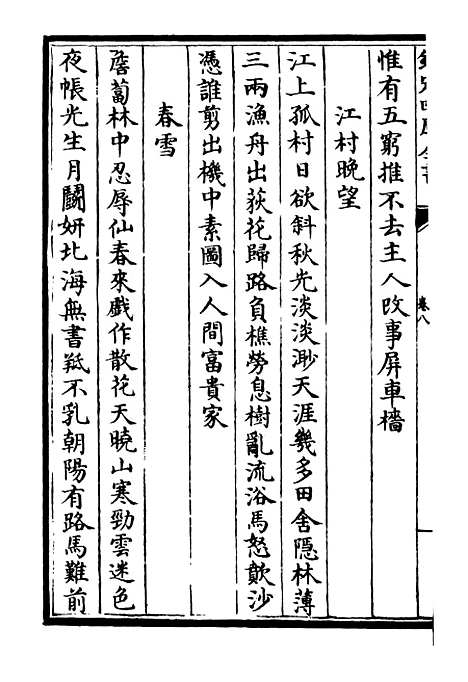 欽定四庫全書
卷八
惟有五窮推不去主人改事屏車檣
江村晚望
江上孤村日欲斜秋光淡淡渺天涯幾多田舍隱林薄
三兩漁舟出荻花歸路負樵勞息樹亂流浴馬怒歕沙
憑誰剪出機中素圖入人間富貴家
春雪
薝蔔林中忍辱仙春來戲作散花天曉山寒勁雲迷色
夜帳光生月鬬妍北海無書羝不乳朝陽有路馬難前